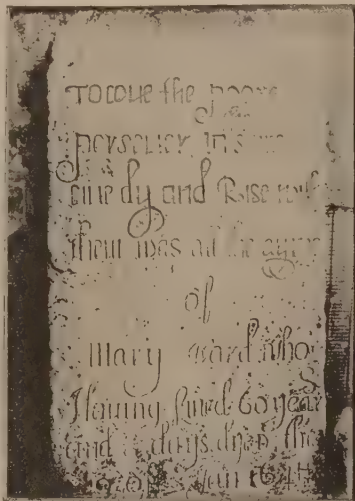 TO LOUE the poore
perseuer in the same
liue dy and Rise with
them was all the ayme
of
Mary Ward who
Hauing liued 60 years
and 8 days dyed the
of Jan 164